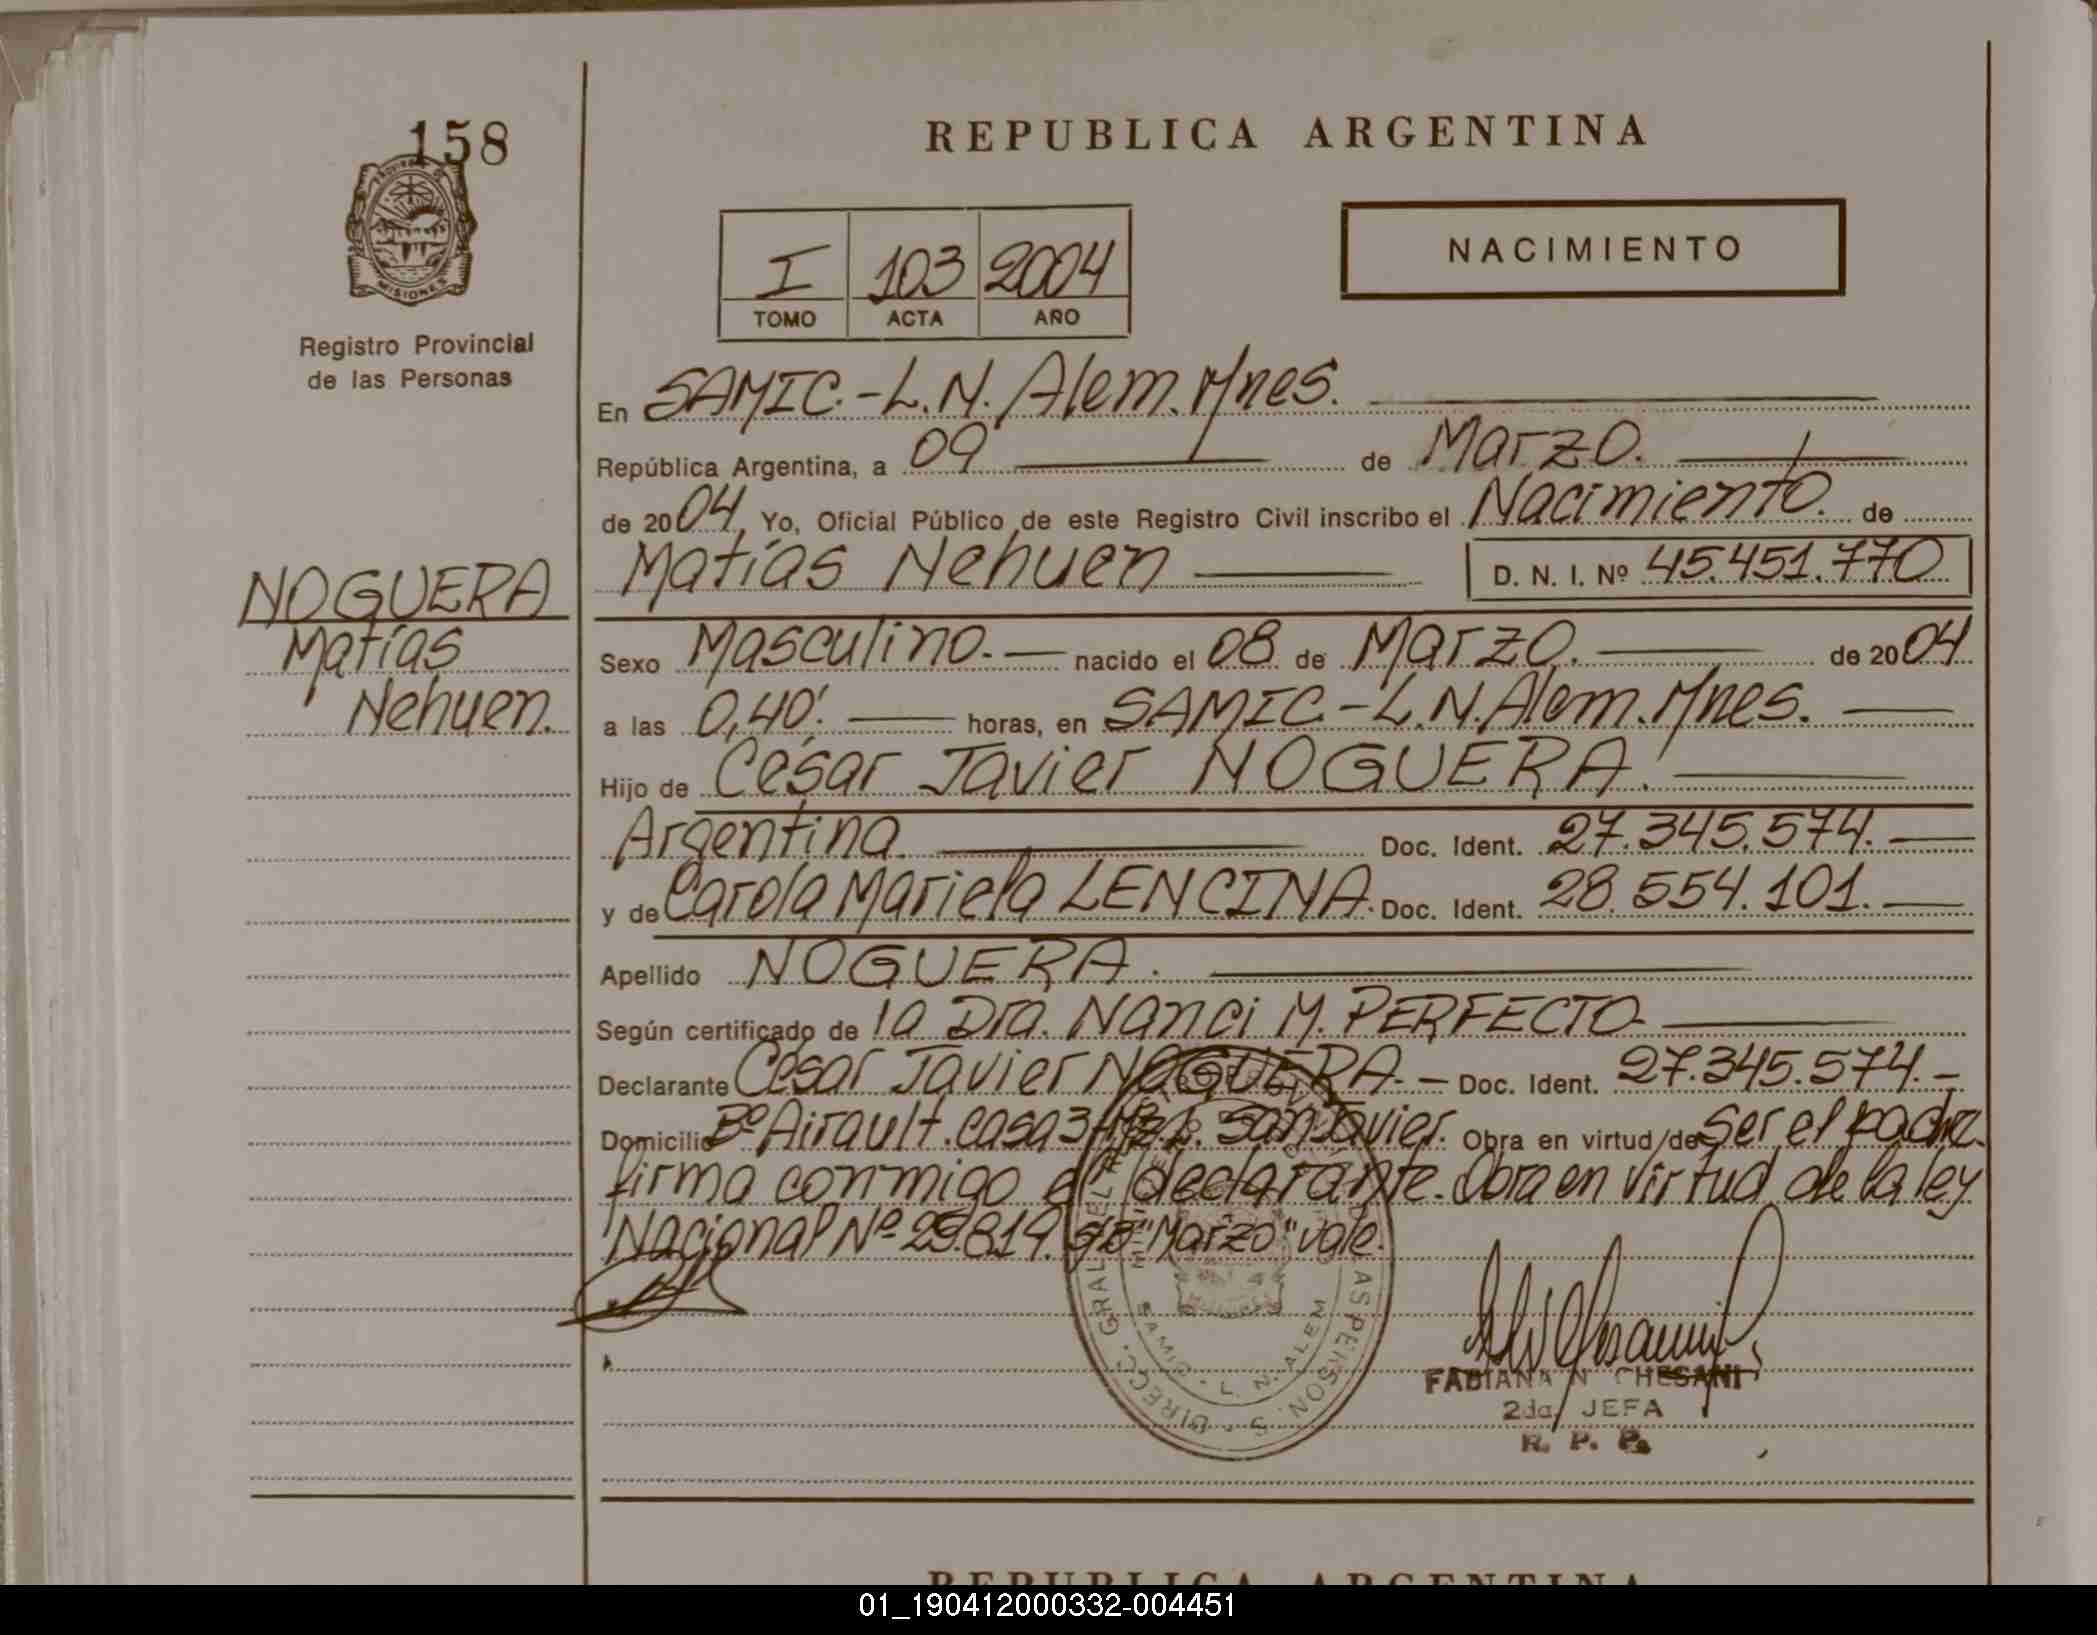 158
REPUBLICA ARGENTINA
PROVINCIA DE
MISIONES
Registro Provincial
de las Personas
NACIMIENTO
I 103 2004
TOMO ACTA AÑO
En SAMIC.-L.N. Alem. Mnes.
República Argentina, a 09 de Marzo.
de 2004, Yo, Oficial Público de este Registro Civil inscribo el Nacimiento. de
Matías Nehuen D. N. I. Nº 45.451.770
NOGUERA
Matías
Nehuen.
Sexo Masculino.- nacido el 08 de Marzo. de 2004
a las 0,40'. horas, en SAMIC.-L.N. Alem. Mnes.
Hijo de César Javier NOGUERA.
Argentina. Doc. Ident. 27.345.574.
y de Carola Mariela LENCINA. Doc. Ident. 28.554.101.
Apellido NOGUERA.
Según certificado de la Dra. Nanci M. PERFECTO
Declarante César Javier NOGUERA.- Doc. Ident. 27.345.574.-
Domicilio Bº Airault. casa 3 San Javier. Obra en virtud de Ser el padre.
firma conmigo el declarante. Obra en virtud de la ley
Nacional Nº 25.819. "Marzo" vale.
DIREC. GRAL. DEL LAS PERSONAS
SAMIC - L. N. ALEM
FABIANA N. CHESANI
2da. JEFA
R. P. P.
REPUBLICA ARGENTINA
01_190412000332-004451